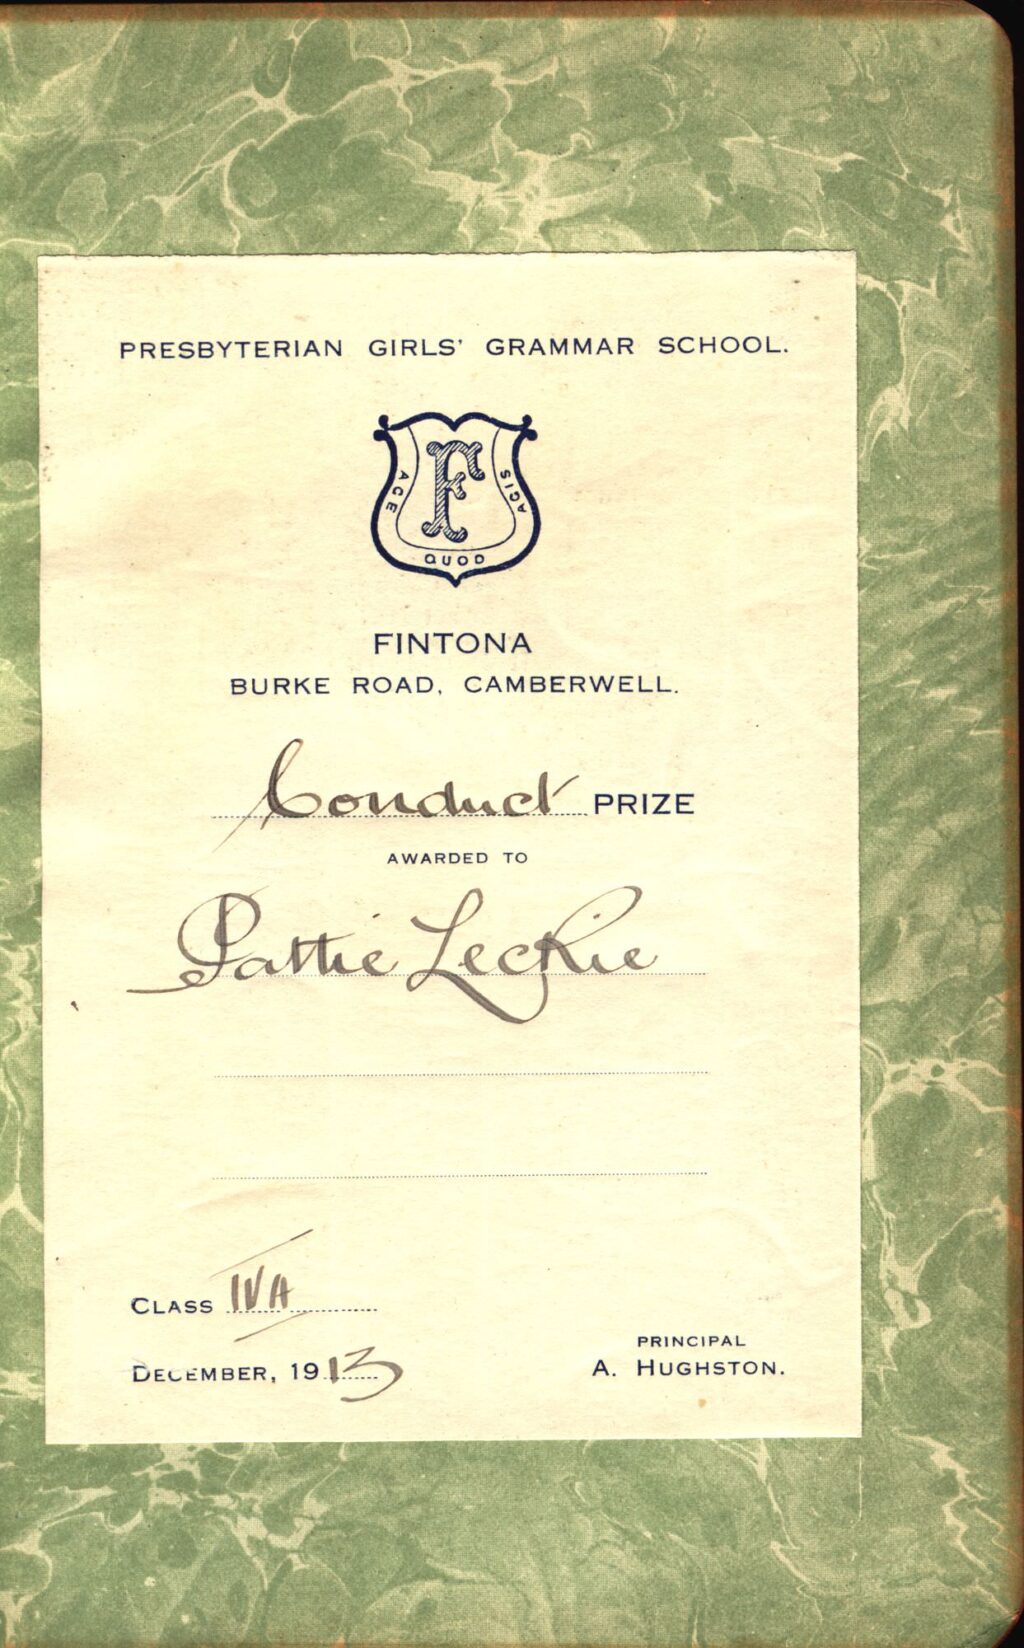 PRESBYTERIAN GIRLS' GRAMMAR SCHOOL.
F
AGE QUOD AGIS
FINTONA
BURKE ROAD, CAMBERWELL.
Conduct PRIZE
AWARDED TO
Pattie Leckie
CLASS IVA
DECEMBER, 1913
PRINCIPAL
A. HUGHSTON.